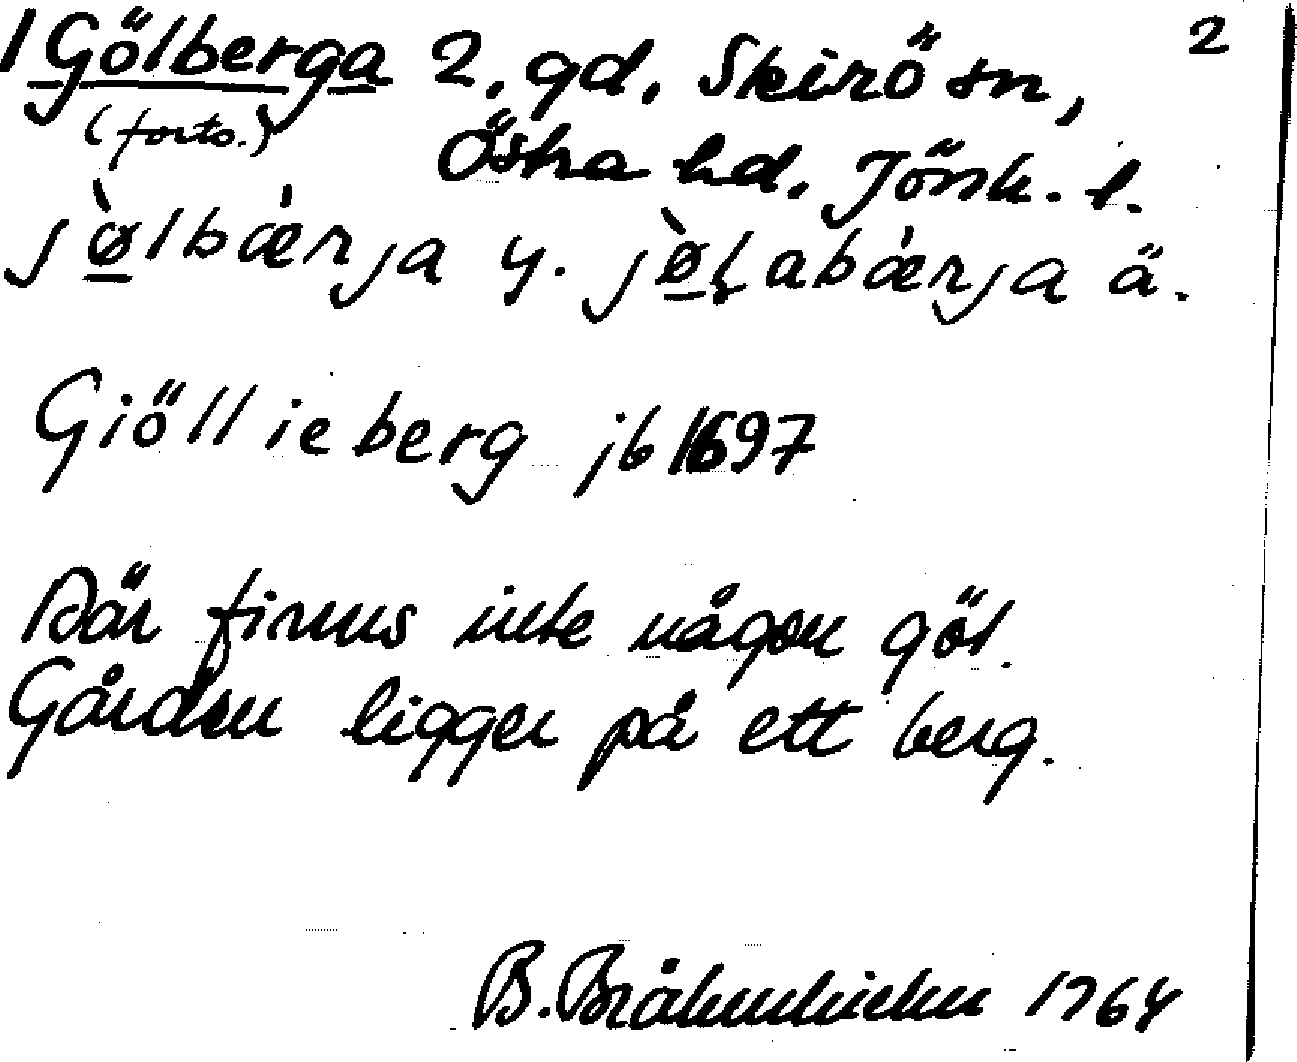 1 Gölberga 2. gd. Skirö sn, 2
(forts.) Östra hd. Jönk. l.
jø̀lbæ̀rja y. jø̀ḷabæ̀rja ä.
Giöllieberg jb 1697
Där finns inte någon göl.
Gården ligger på ett berg.
B. Bråhnhielm 1964